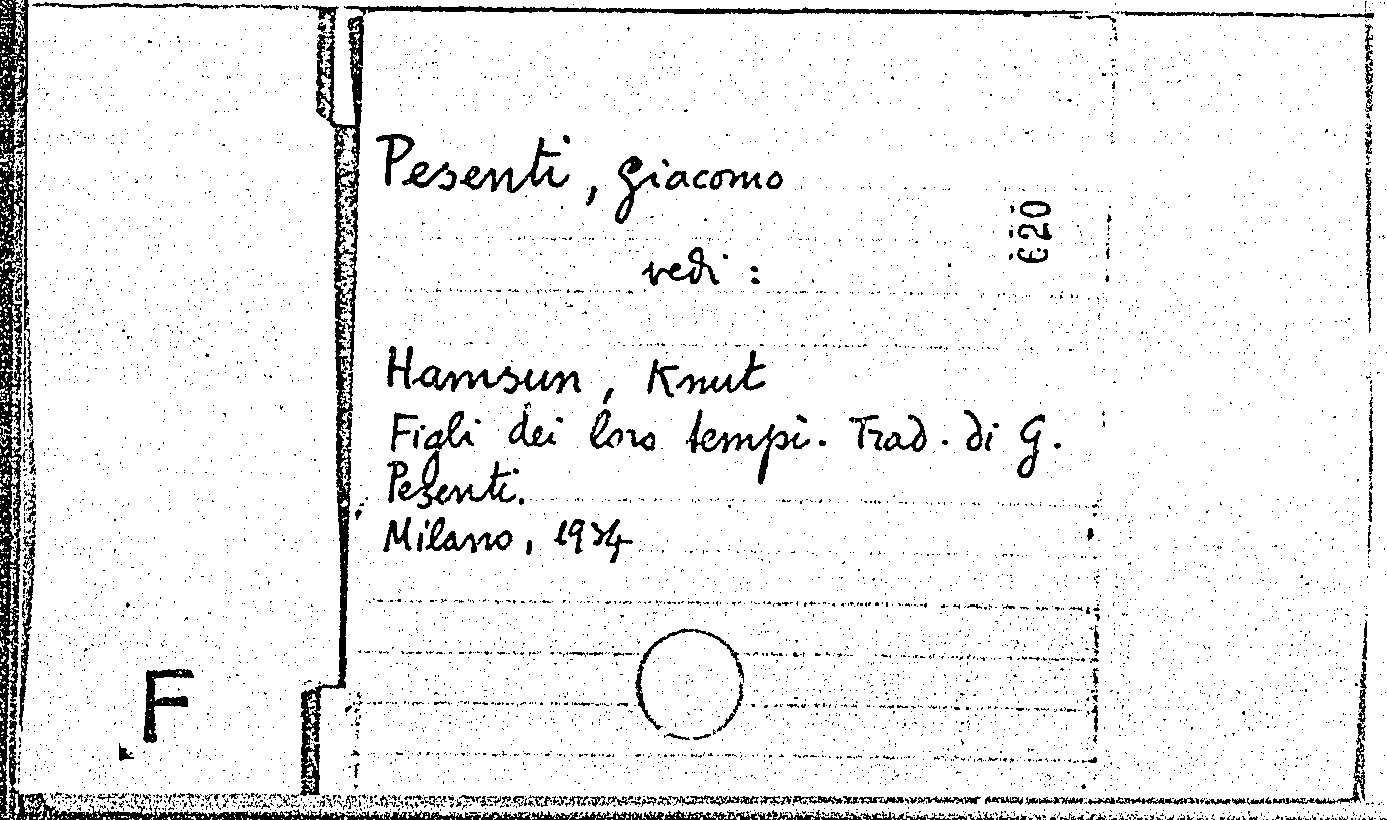 Pesenti, Giacomo
vedi:
Hamsun, Knut
Figli dei loro tempi. Trad. di G.
Pesenti.
Milano, 1934
620
F